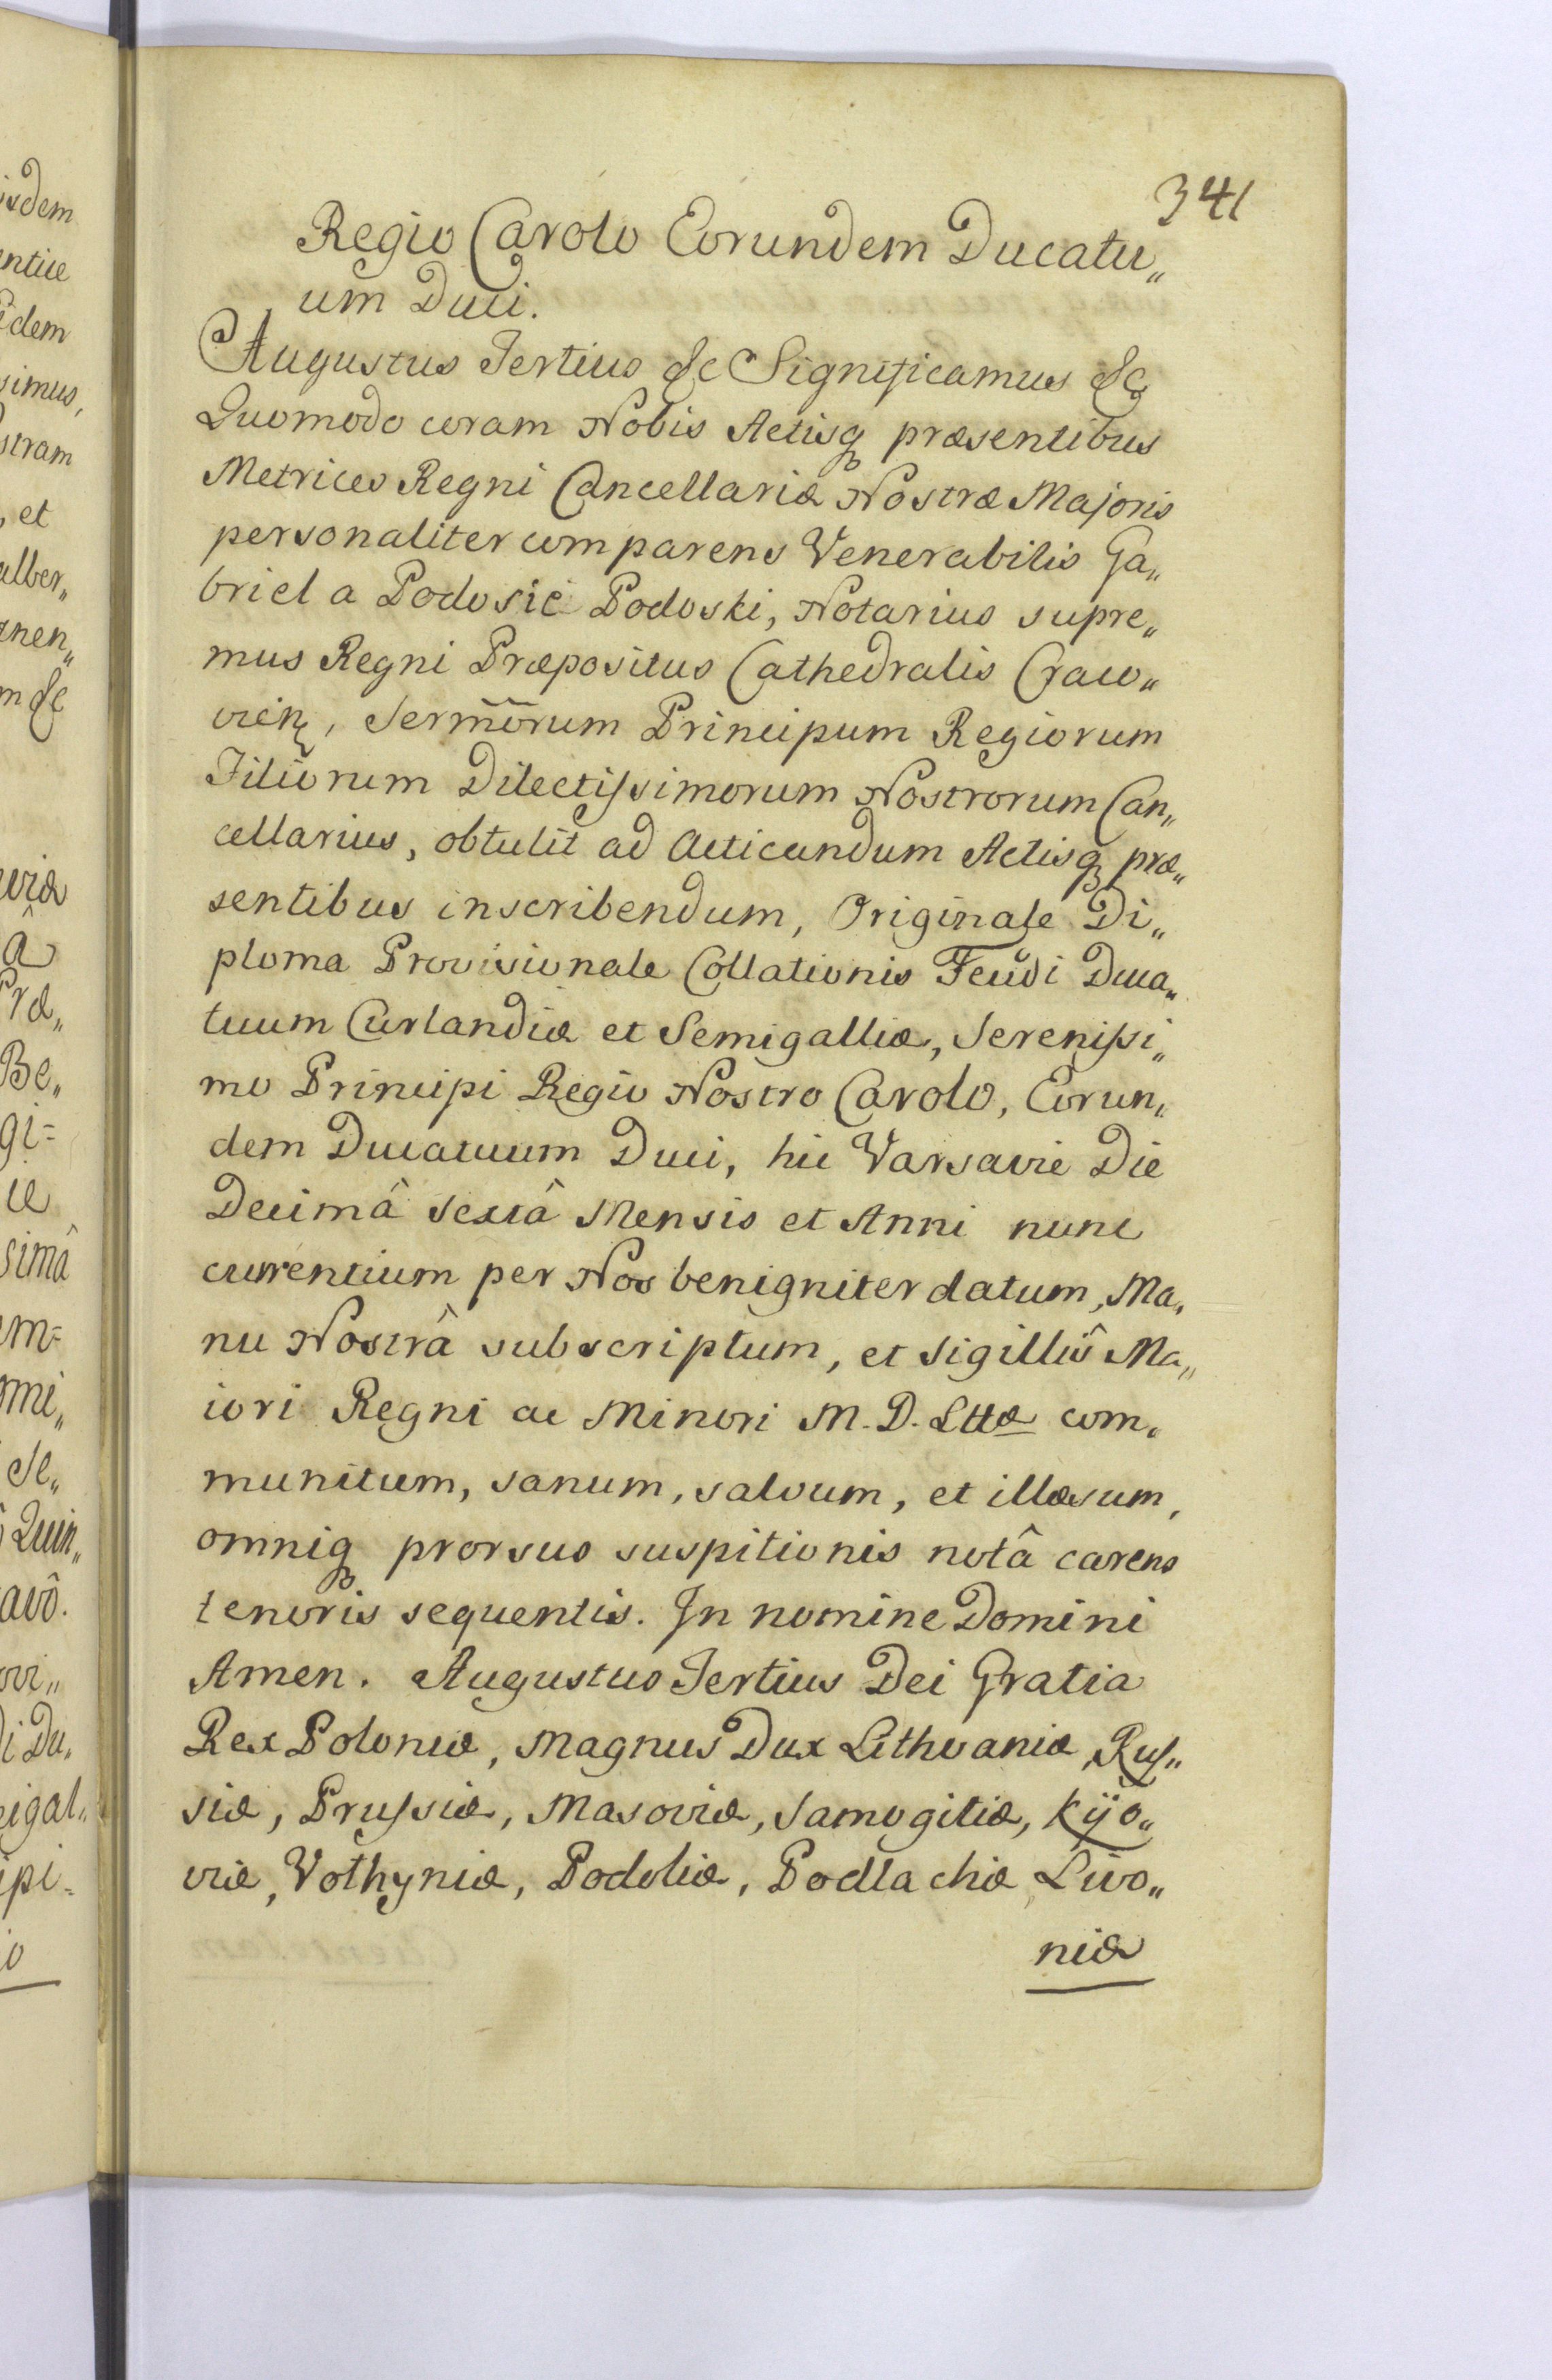 341
Regio Carolo Eorundem Ducatu„
um Duci.
Augustus Tertius &c Significamus &c
Quomodo coram Nobis Actisq præsentibus
Metrices Regni Cancellariæ Nostræ Majoris
personaliter comparens Venerabilis Ga„
briel a Podosie Podoski, Notarius supre„
mus Regni Præpositus Cathedralis Craco„
vien, Sermõrum Principum Regiorum
Filiorum Dilectissimorum Nostrorum Can„
cellarius, obtulit ad Acticandum Actisq præ„
sentibus inscribendum, Originale Di„
ploma Provisionale Collationis Feudi Duca„
tuum Curlandiæ et Semigalliæ, Serenissi„
mo Principi Regio Nostro Carolo, Eorun„
dem Ducatuum Duci, hic Varsavie Die
Decimâ Sextâ Mensis et Anni nunc
currentium per Nos benigniter datum, Ma„
nu Nostrâ subscriptum, et Sigillis Ma„
iori Regni ac Minori M. D. Lttæ com„
munitum, sanum, salvum, et illæsum,
omniq prorsus suspitionis notâ carens
tenoris sequentis. In nomine Domini
Amen. Augustus Tertius Dei Gratia
Rex Poloniæ, Magnus Dux Lithvaniæ, Rus„
siæ, Prussiæ, Masoviæ, Samogitiæ, Kÿo„
viæ, Volhyniæ, Podoliæ, Podlachiæ, Livo„
niæ
isdem
entiæ
idem
simus,
stram
, et
alber„
nnen„
m &c
viæ
â
Præ„
Be„
gi=
ce
simâ
em=
omi„
Se„
Quin„
avô.
ovi„
di Du„
migal„
ipi=
io